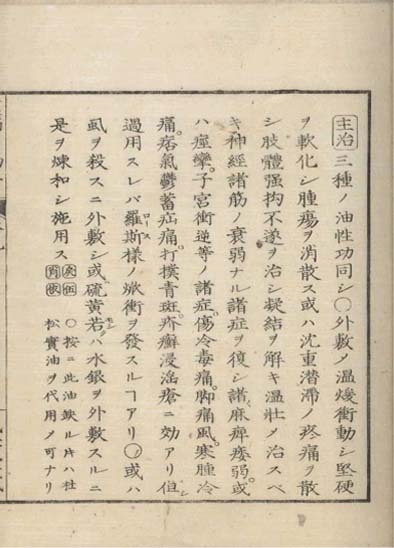 主治三種ノ油性功同シ〇外敷〆溫煖衝動シ堅硬
ヲ軟化シ腫瘍ヲ消散ス或ハ沈重潜滯ノ疼痛ヲ散
シ肢體强拘不遂ヲ治シ凝結ヲ解キ溫壯〆治スベ
キ神經諸筋ノ衰弱ナル諸症ヲ復シ諸麻痺痿弱。或
ハ痙攣。子宮衝逆等ノ諸症。傷冷毒痛。脚痛風。寒腫冷
痛。痞氣鬱蓄疝痛。打撲青斑。疥癬浸淫瘡ニ効アリ但シ
過用スレバ羅斯ロース樣ノ焮衝ヲ發スルヿアリ〇或ハ
虱ヲ殺スニ外敷シ或硫黃若モシクハ水銀ヲ外敷スルニ
是ヲ煉和シ施用ス
〇按ニ此油缺ル片ハ杜
松實油ヲ代用〆可ナリ